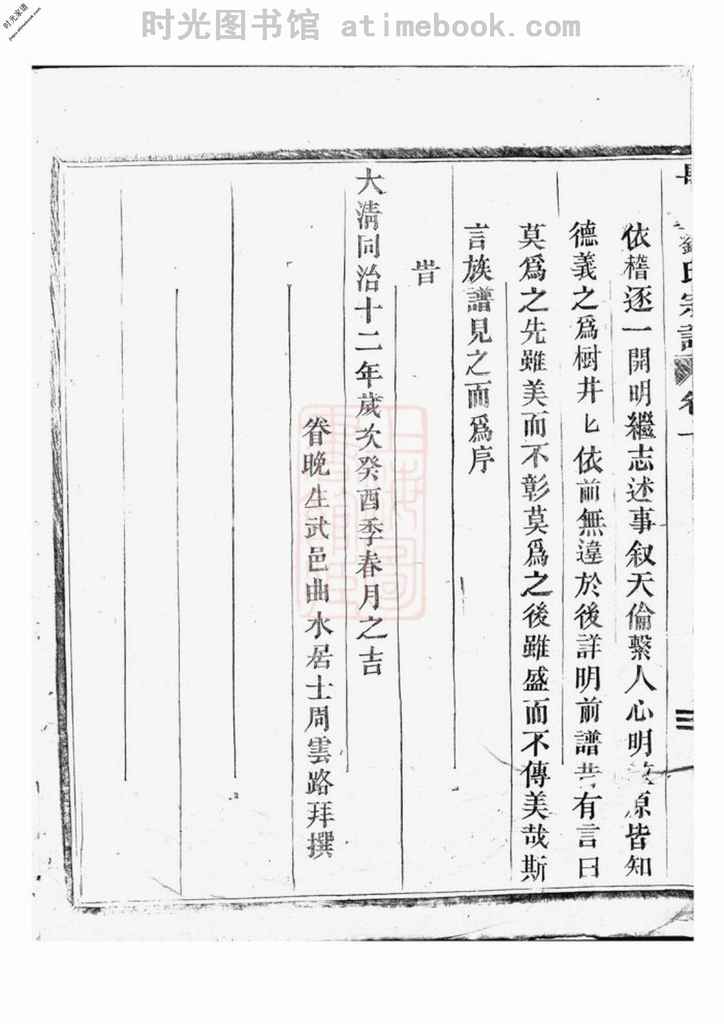 时光图书馆 atimebook.com
时光家谱
劉氏宗譜 卷一
依稽逐一開明繼志述事叙天倫繫人心明 原皆知
德義之為樹井匕依前無違於後詳明前譜昔有言曰
莫為之先雖美而不彰莫為之後雖盛而不傳美哉斯
言族譜見之而為序
旹
大清同治十二年歲次癸酉季春月之吉
眷晚生武邑曲水居士周雲路拜撰